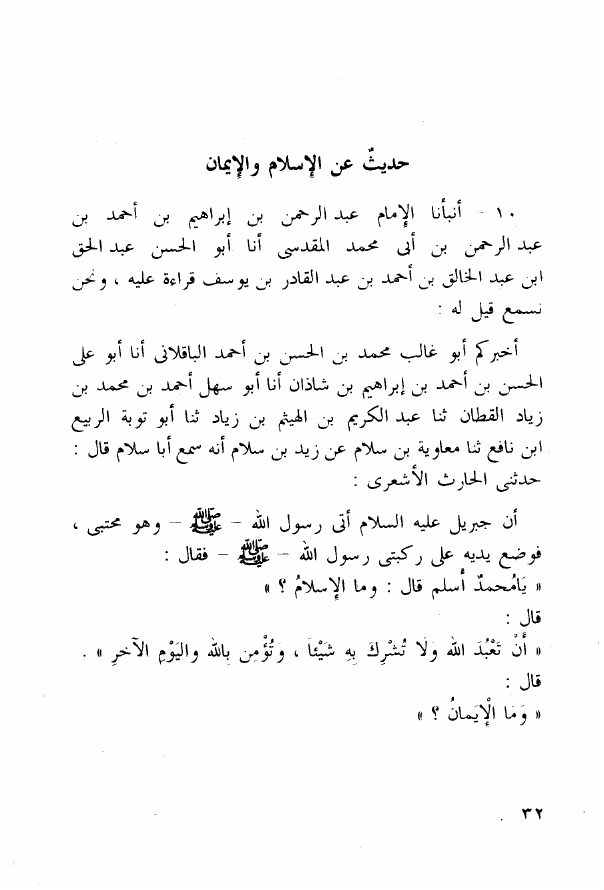 حديثٌ عن الإسلام والإيمان
١٠ - أنبأنا الإمام عبد الرحمن بن إبراهيم بن أحمد بن
عبد الرحمن بن أبى محمد المقدسى أنا أبو الحسن عبد الحق
ابن عبد الخالق بن أحمد بن عبد القادر بن يوسف قراءة عليه ، ونحن
نسمع قيل له :
أخبركم أبو غالب محمد بن الحسن بن أحمد الباقلانى أنا أبو على
الحسن بن أحمد بن إبراهيم بن شاذان أنا أبو سهل أحمد بن محمد بن
زياد القطان ثنا عبد الكريم بن الهيثم بن زياد ثنا أبو توبة الربيع
ابن نافع ثنا معاوية بن سلام عن زيد بن سلام أنه سمع أبا سلام قال :
حدثنى الحارث الأشعرى :
أن جبريل عليه السلام أتى رسول الله - ﷺ - وهو محتبى ،
فوضع يديه على ركبتى رسول الله - ﷺ - فقال :
« يَامُحمدٌ أسلم قال : وما الإسلامُ ؟ »
قال :
« أَنْ تَعْبُدَ الله وَلَا تُشْرِكَ بِهِ شَيْئاً ، وَتُؤْمِن بِالله واليَوْمِ الآخرِ » .
قال :
« وَمَا الْإيَمانُ ؟ »
٣٢